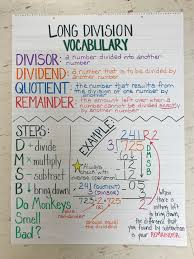 LONG DIVISION
VOCABULARY
DIVISOR: a number divided into another
number
DIVIDEND: a number that is to be divided by
another number
QUOTIENT: the number that results from
the division of one number by
another
REMAINDER: the amount left over when a
number cannot be divided evenly by
another number
STEPS:
D ÷ divide
M × multiply
S - subtract
B ↓ bring down
Do Monkeys
Smell
Bad?
EXAMPLE
241 R2
3 725
-6
12
-12
05
- 3
2
D
M
S
B
Always
check with
inverse
operation!
241 (quotient)
× 3 (divisor)
723
+ 2
725
add remainder
should equal
the dividend
When there is
nothing left
to bring down,
the difference
that you
found by subtraction is
your REMAINDER.